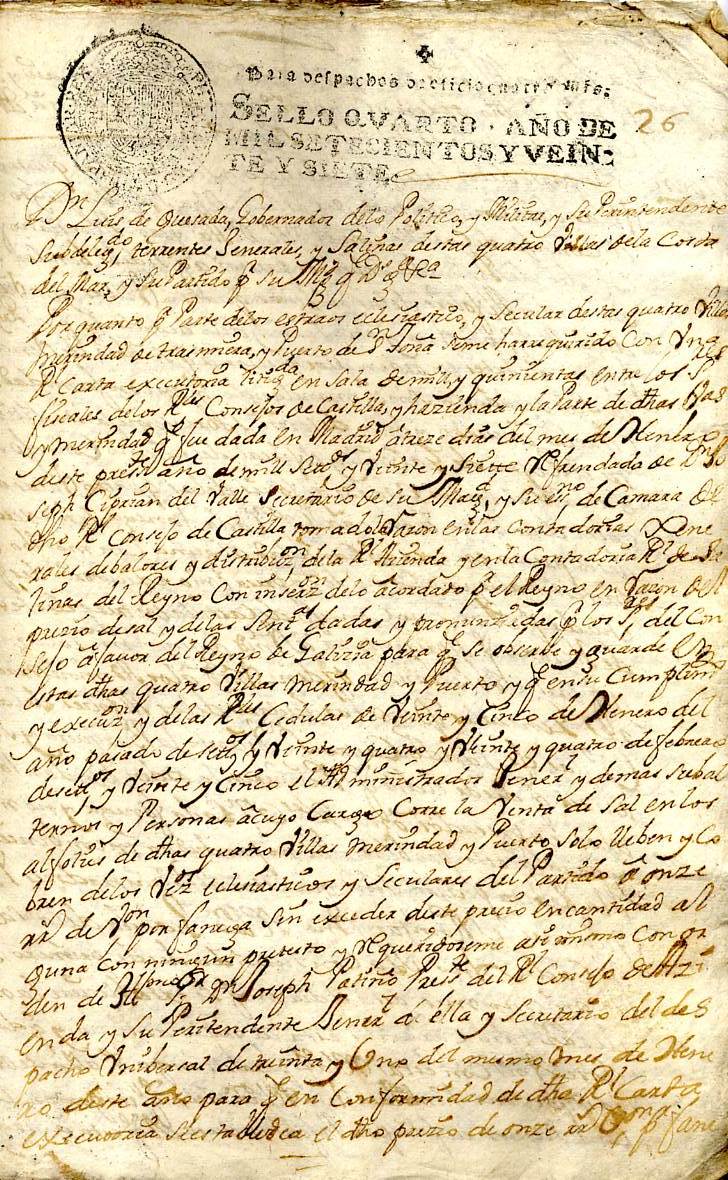 Para despachos de oficio quatro mrs:
SELLO QVARTO · AÑO DE
MIL SETECIENTOS Y VEIN-
TE Y SIETE
26
Dn Luis de Quesada, Gobernador delo Politico, y Militar, y Superintendente
Subdelegdo, terrentes Generales, y Salinas destas quatro Villas dela Costa
del Mar, y Su Partido pr Su Magd
Por quanto pr Parte delos estados eclesiastico, y Secular destas quatro Villas
Merindad de trasmiera, y Puerto de Sn Toña Seme ha rrequirido Con Vna
Rl Carta executoria litigda en Sala de mill y quinientas entre los Ses
fiscales delos Rles Consejos de Castilla, y hazienda y la Parte de dhas Vas
y merindad qe fue dada en Madrid a treze dias del mes de Henero
deste preste año de mill Setos y Veinte y Siette Refrendado de Dn Jo
seph Ciprian del Valle Secretario de Su Magd, y Su esno de Camara de
dho Rl Consejo de Castilla tomada la Razon en las Contadurias Xene
rales de balores y distribuzon de la Rl Hazienda y en la Contaduria Rl de Sa
linas del Reyno Con inserzon delo acordado pr el Reyno en Razon del
prezio de sal y delas Sentas dadas y pronunziadas pr los Ses del Con
sejo a favor del Reyno de Galizia para qe se observe y guarde en
estas dhas quatro Villas Merindad y Puerto y qe en su Cumplimto
y execuzon y delas Rles Cedulas de Veinte y Cinco de Henero del
año pasado de setos y Veinte y quatro y Veinte y quatro de febrero
de setos y Veinte y Cinco el Administrador Generl y demas subal
ternos y Personas a cuyo Cargo Corre la Venta de Sal en los
alfolies de dhas quatro Villas Merindad y Puerto Solo lleben y Co
bren delos Vezos eclesiasticos y Seculares del Partido a onze
rrs de Von por fanega sin exceder deste prezio en cantidad al
guna Con ningun pretesto y Requeridoseme asimismo Con or
den de Dn Joseph Patiño Preste del Rl Consejo de Azi
enda y Superitendente Generl de ella y Secretario del des
pacho Vnibersal de treinta y Uno del mismo mes de Hene
ro deste año para qe en Conformidad de dha Rl Carta
executoria se establezca el dho prezio de onze rrs Von pr fane